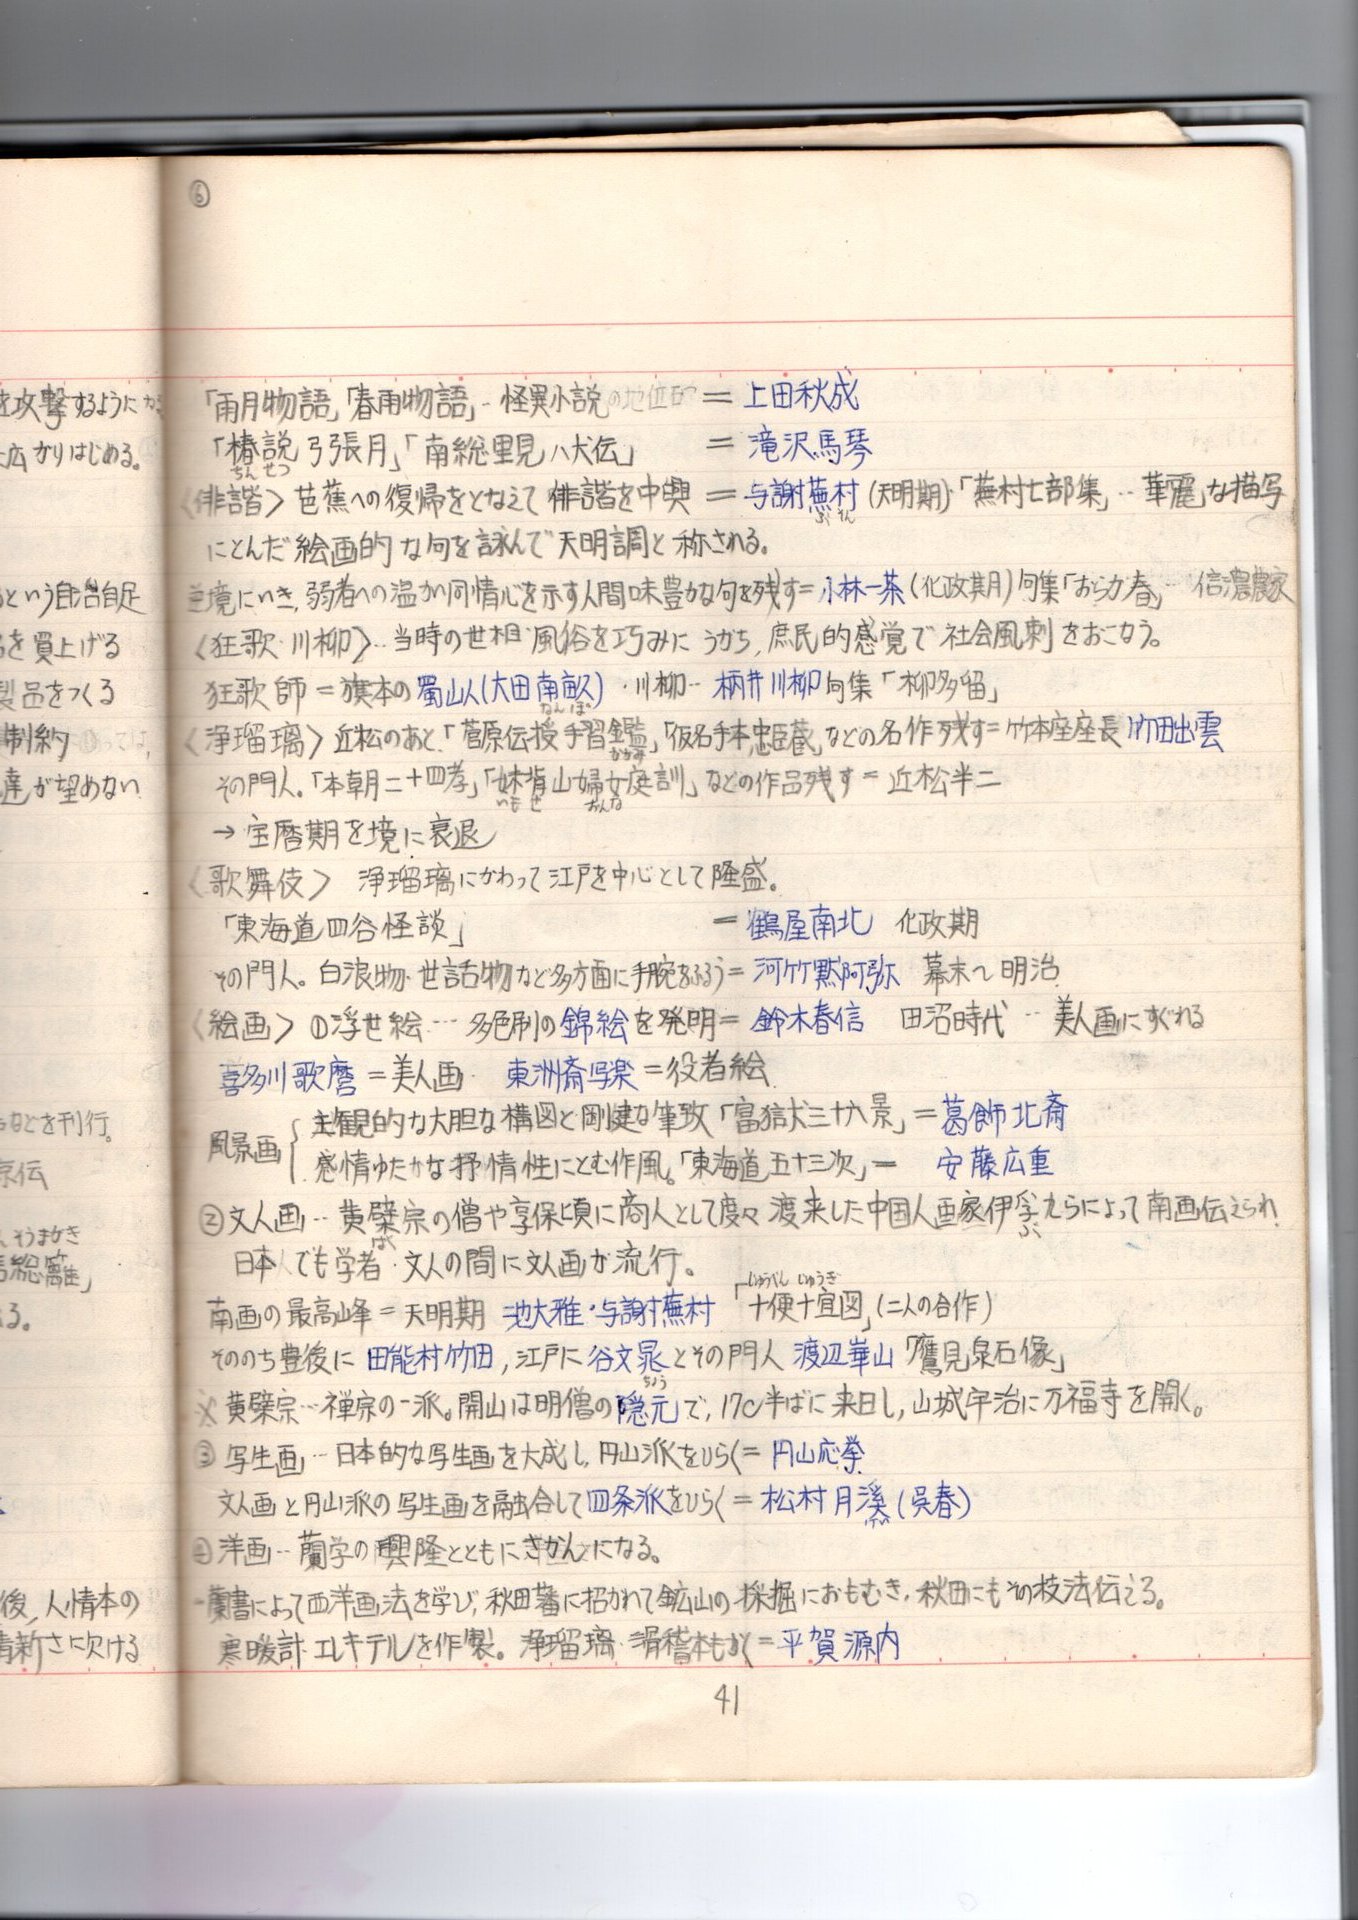 ⑥
を攻撃するようにか
広がりはじめる。
という自給自足
を買上げる
製品をつくる
制約
達が望めない
などを刊行。
京伝
そうまがき
総籬」
る。
後、人情本の
清新さに欠ける
「雨月物語」「春雨物語」‥怪異小説の地位 = 上田秋成
「椿説弓張月」「南総里見八犬伝」 = 滝沢馬琴
ちんせつ
〈俳諧〉芭蕉への復帰をとなえて俳諧を中興 = 与謝蕪村(天明期)・「蕪村七部集」‥華麗な描写
ぶそん
にとんだ絵画的な句を詠んで天明調と称される。
逆境にいき、弱者への温かい同情心を示す人間味豊かな句を残す=小林一茶(化政期)句集「おらが春」‥信濃農家
〈狂歌・川柳〉‥当時の世相・風俗を巧みにうがち、庶民的感覚で社会風刺をおこなう。
狂歌師=旗本の蜀山人(大田南畝)・川柳‥柄井川柳句集「柳多留」
なんぽ
〈浄瑠璃〉近松のあと、「菅原伝授手習鑑」「仮名手本忠臣蔵」などの名作残す=竹本座座長竹田出雲
かがみ
その門人。「本朝二十四孝」「妹背山婦女庭訓」などの作品残す=近松半二
いもせ おんな
→宝暦期を境に衰退
〈歌舞伎〉 浄瑠璃にかわって江戸を中心として隆盛。
「東海道四谷怪談」 = 鶴屋南北 化政期
その門人。白浪物・世話物など多方面に手腕をふるう=河竹黙阿弥 幕末〜明治
〈絵画〉①浮世絵‥‥多色刷の錦絵を発明=鈴木春信 田沼時代‥美人画にすぐれる
喜多川歌麿=美人画 東洲斎写楽=役者絵
風景画{主観的な大胆な構図と剛健な筆致「富嶽三十六景」=葛飾北斎
感情ゆたかな抒情性にとむ作風。「東海道五十三次」= 安藤広重
②文人画‥黄檗宗の僧や享保頃に商人として度々渡来した中国人画家伊孚九らによって南画伝えられ、
ばく ふ
日本でも学者・文人の間に文人画が流行。
じゅうべんじゅうぎ
南画の最高峰=天明期 池大雅・与謝蕪村 「十便十宜図」(二人の合作)
そののち豊後に田能村竹田,江戸に谷文晁とその門人渡辺崋山「鷹見泉石像」
ちょう
※黄檗宗‥禅宗の一派。開山は明僧の隠元で,17C半ばに来日し,山城宇治に万福寺を開く。
③写生画‥日本的な写生画を大成し,円山派をひらく=円山応挙
文人画と円山派の写生画を融合して四条派をひらく=松村月溪(呉春)
けい
④洋画‥蘭学の興隆とともにさかんになる。
蘭書によって西洋画法を学び,秋田藩に招かれて鉱山の採掘におもむき,秋田にもその技法伝える。
寒暖計・エレキテルを作製。浄瑠璃・滑稽本もかく=平賀源内
41